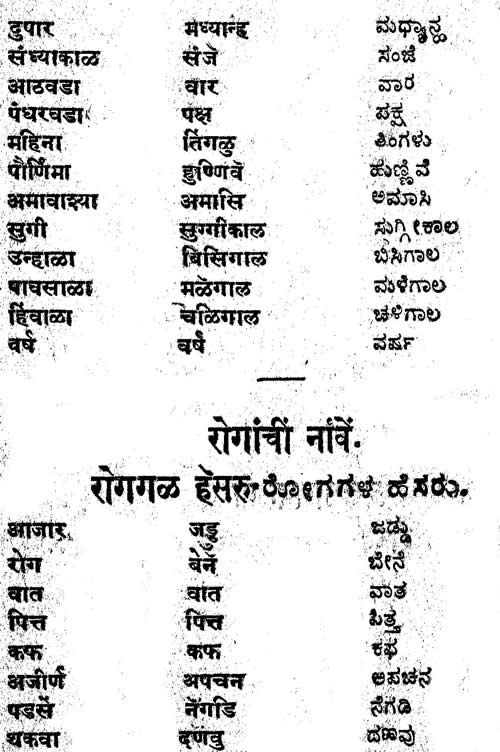 दुपार मध्यान्ह ಮಧ್ಯಾನ್ಹ
संध्याकाळ संजॆ ಸಂಜೆ
आठवडा वार ವಾರ
पंधरवडा पक्ष ಪಕ್ಷ
महिना तिंगळु ತಿಂಗಳು
पौर्णिमा हुण्णिवॆ ಹುಣ್ಣಿವೆ
अमावाश्या अमासि ಅಮಾಸಿ
सुगी सुग्गीकाल ಸುಗ್ಗೀಕಾಲ
उन्हाळा बिसिगाल ಬಿಸಿಗಾಲ
पावसाळा मळॆगाल ಮಳೆಗಾಲ
हिंवाळा चळिगाल ಚಳಿಗಾಲ
वर्ष वर्ष ವರ್ಷ
रोगांचीं नांवें.
रोगगळ हॆसरु-ರೋಗಗಳ ಹೆಸರು.
आजार जड्डु ಜಡ್ಡು
रोग बेनॆ ಬೇನೆ
वात वात ವಾತ
पित्त पित्त ಪಿತ್ತ
कफ कफ ಕಫ
अजीर्ण अपचन ಅಪಚನ
पडसें नॆगडि ನೆಗಡಿ
थकवा दणवु ದಣವು